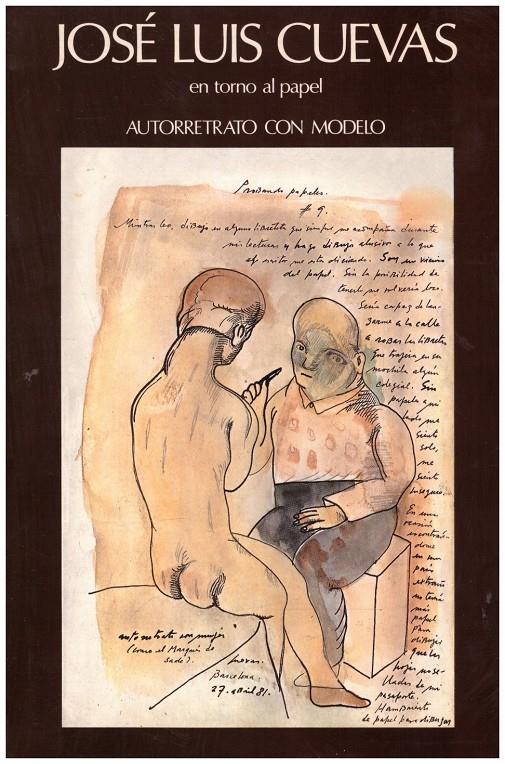 JOSÉ LUIS CUEVAS
en torno al papel
AUTORRETRATO CON MODELO
Probando papeles.
# 9.
Mientras leo, dibujo en alguna libretita que siempre me acompaña durante
mis lecturas y hago dibujo alusivo a lo que
el escrito me esta diciendo. Soy un vicioso
del papel. Sin la posibilidad de
tenerlo me volvería loco.
Sería capaz de lan-
zarme a la calle
a robar las libretas
que trajera en su
mochila algún
colegial. Sin
papel a mi
lado me
siento
solo,
me
siento
inseguro.
En una
ocasión
encontrán-
dome
en un
país
extraño
no tenía
más
papel
para
dibujar
que las
hojas no se-
lladas de mi
pasaporte.
Hambriento
de papel para dibujar
autorretrato con mujer
(como el Marqués de
Sade).
Cuevas.
Barcelona.
27. abril 81.